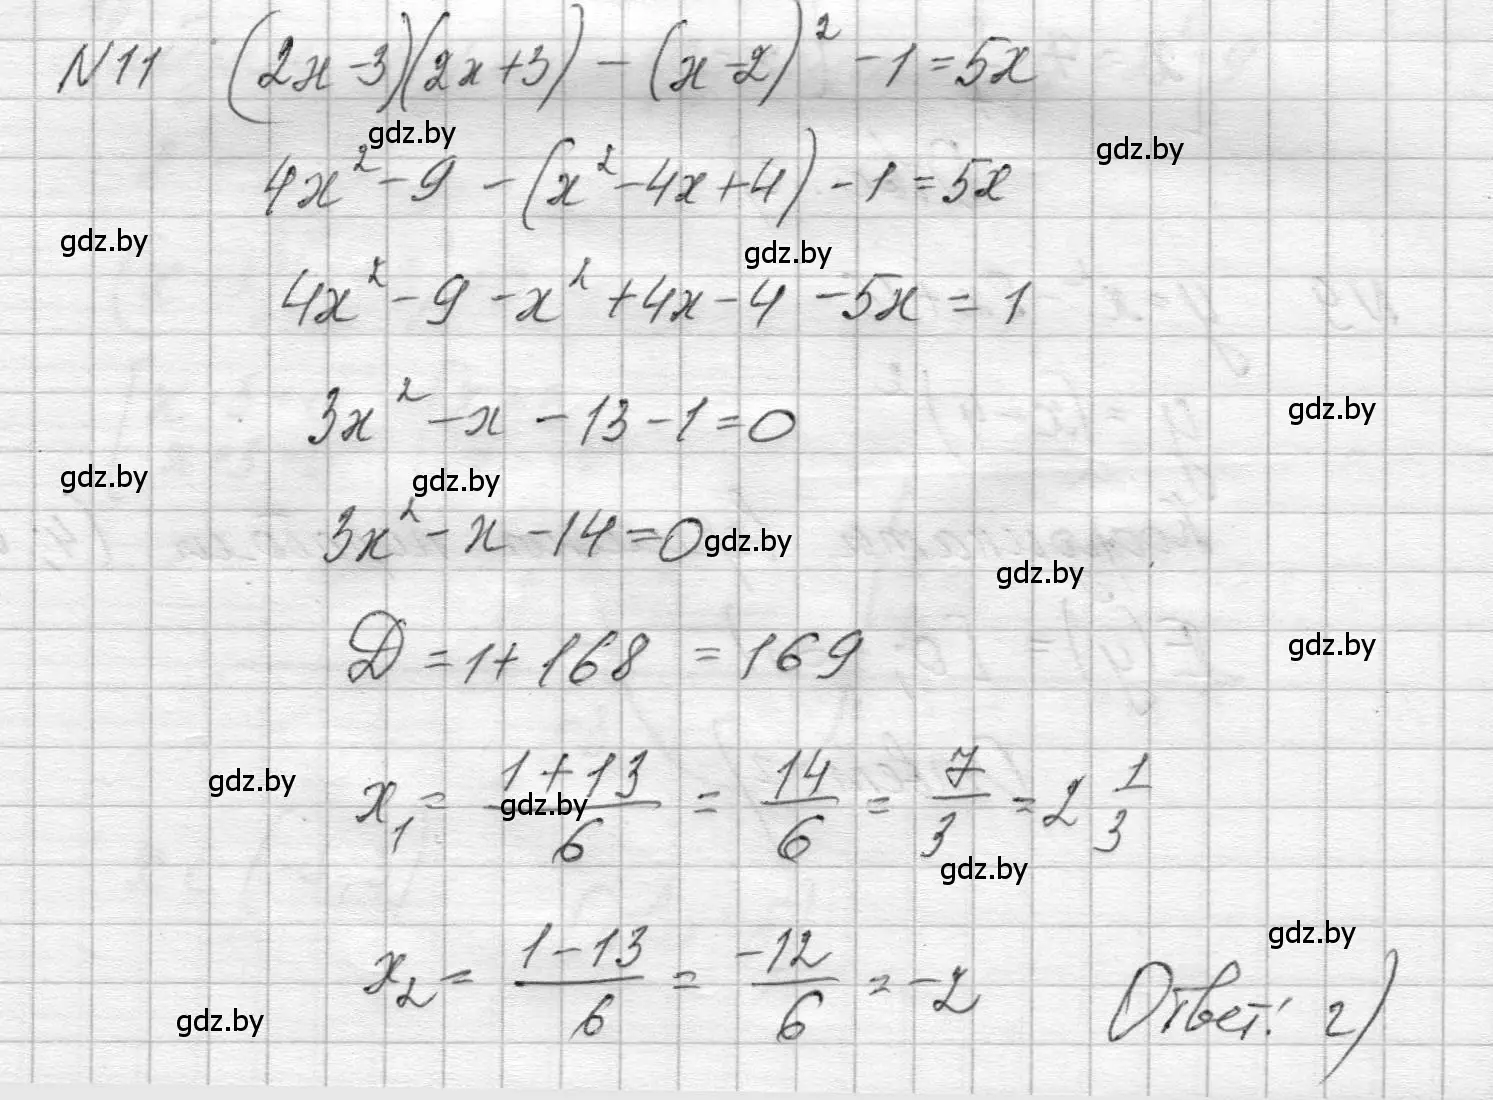 N11 (2x-3)(2x+3) - (x-2)² - 1 = 5x
gdz.by
gdz.by
4x² - 9 - (x² - 4x + 4) - 1 = 5x
gdz.by
gdz.by
4x² - 9 - x² + 4x - 4 - 5x = 1
3x² - x - 13 - 1 = 0
gdz.by
gdz.by
gdz.by
3x² - x - 14 = 0
gdz.by
gdz.by
D = 1 + 168 = 169
gdz.by
x₁ = (1+13)/6 = 14/6 = 7/3 = 2 1/3
gdz.by
gdz.by
gdz.by
gdz.by
x₂ = (1-13)/6 = -12/6 = -2
Ответ: г)
gdz.by